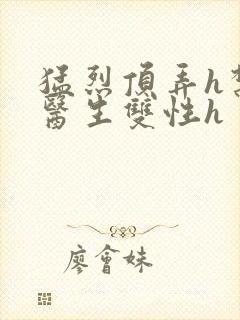 猛烈頂弄h
醫生雙性h
廖會妹